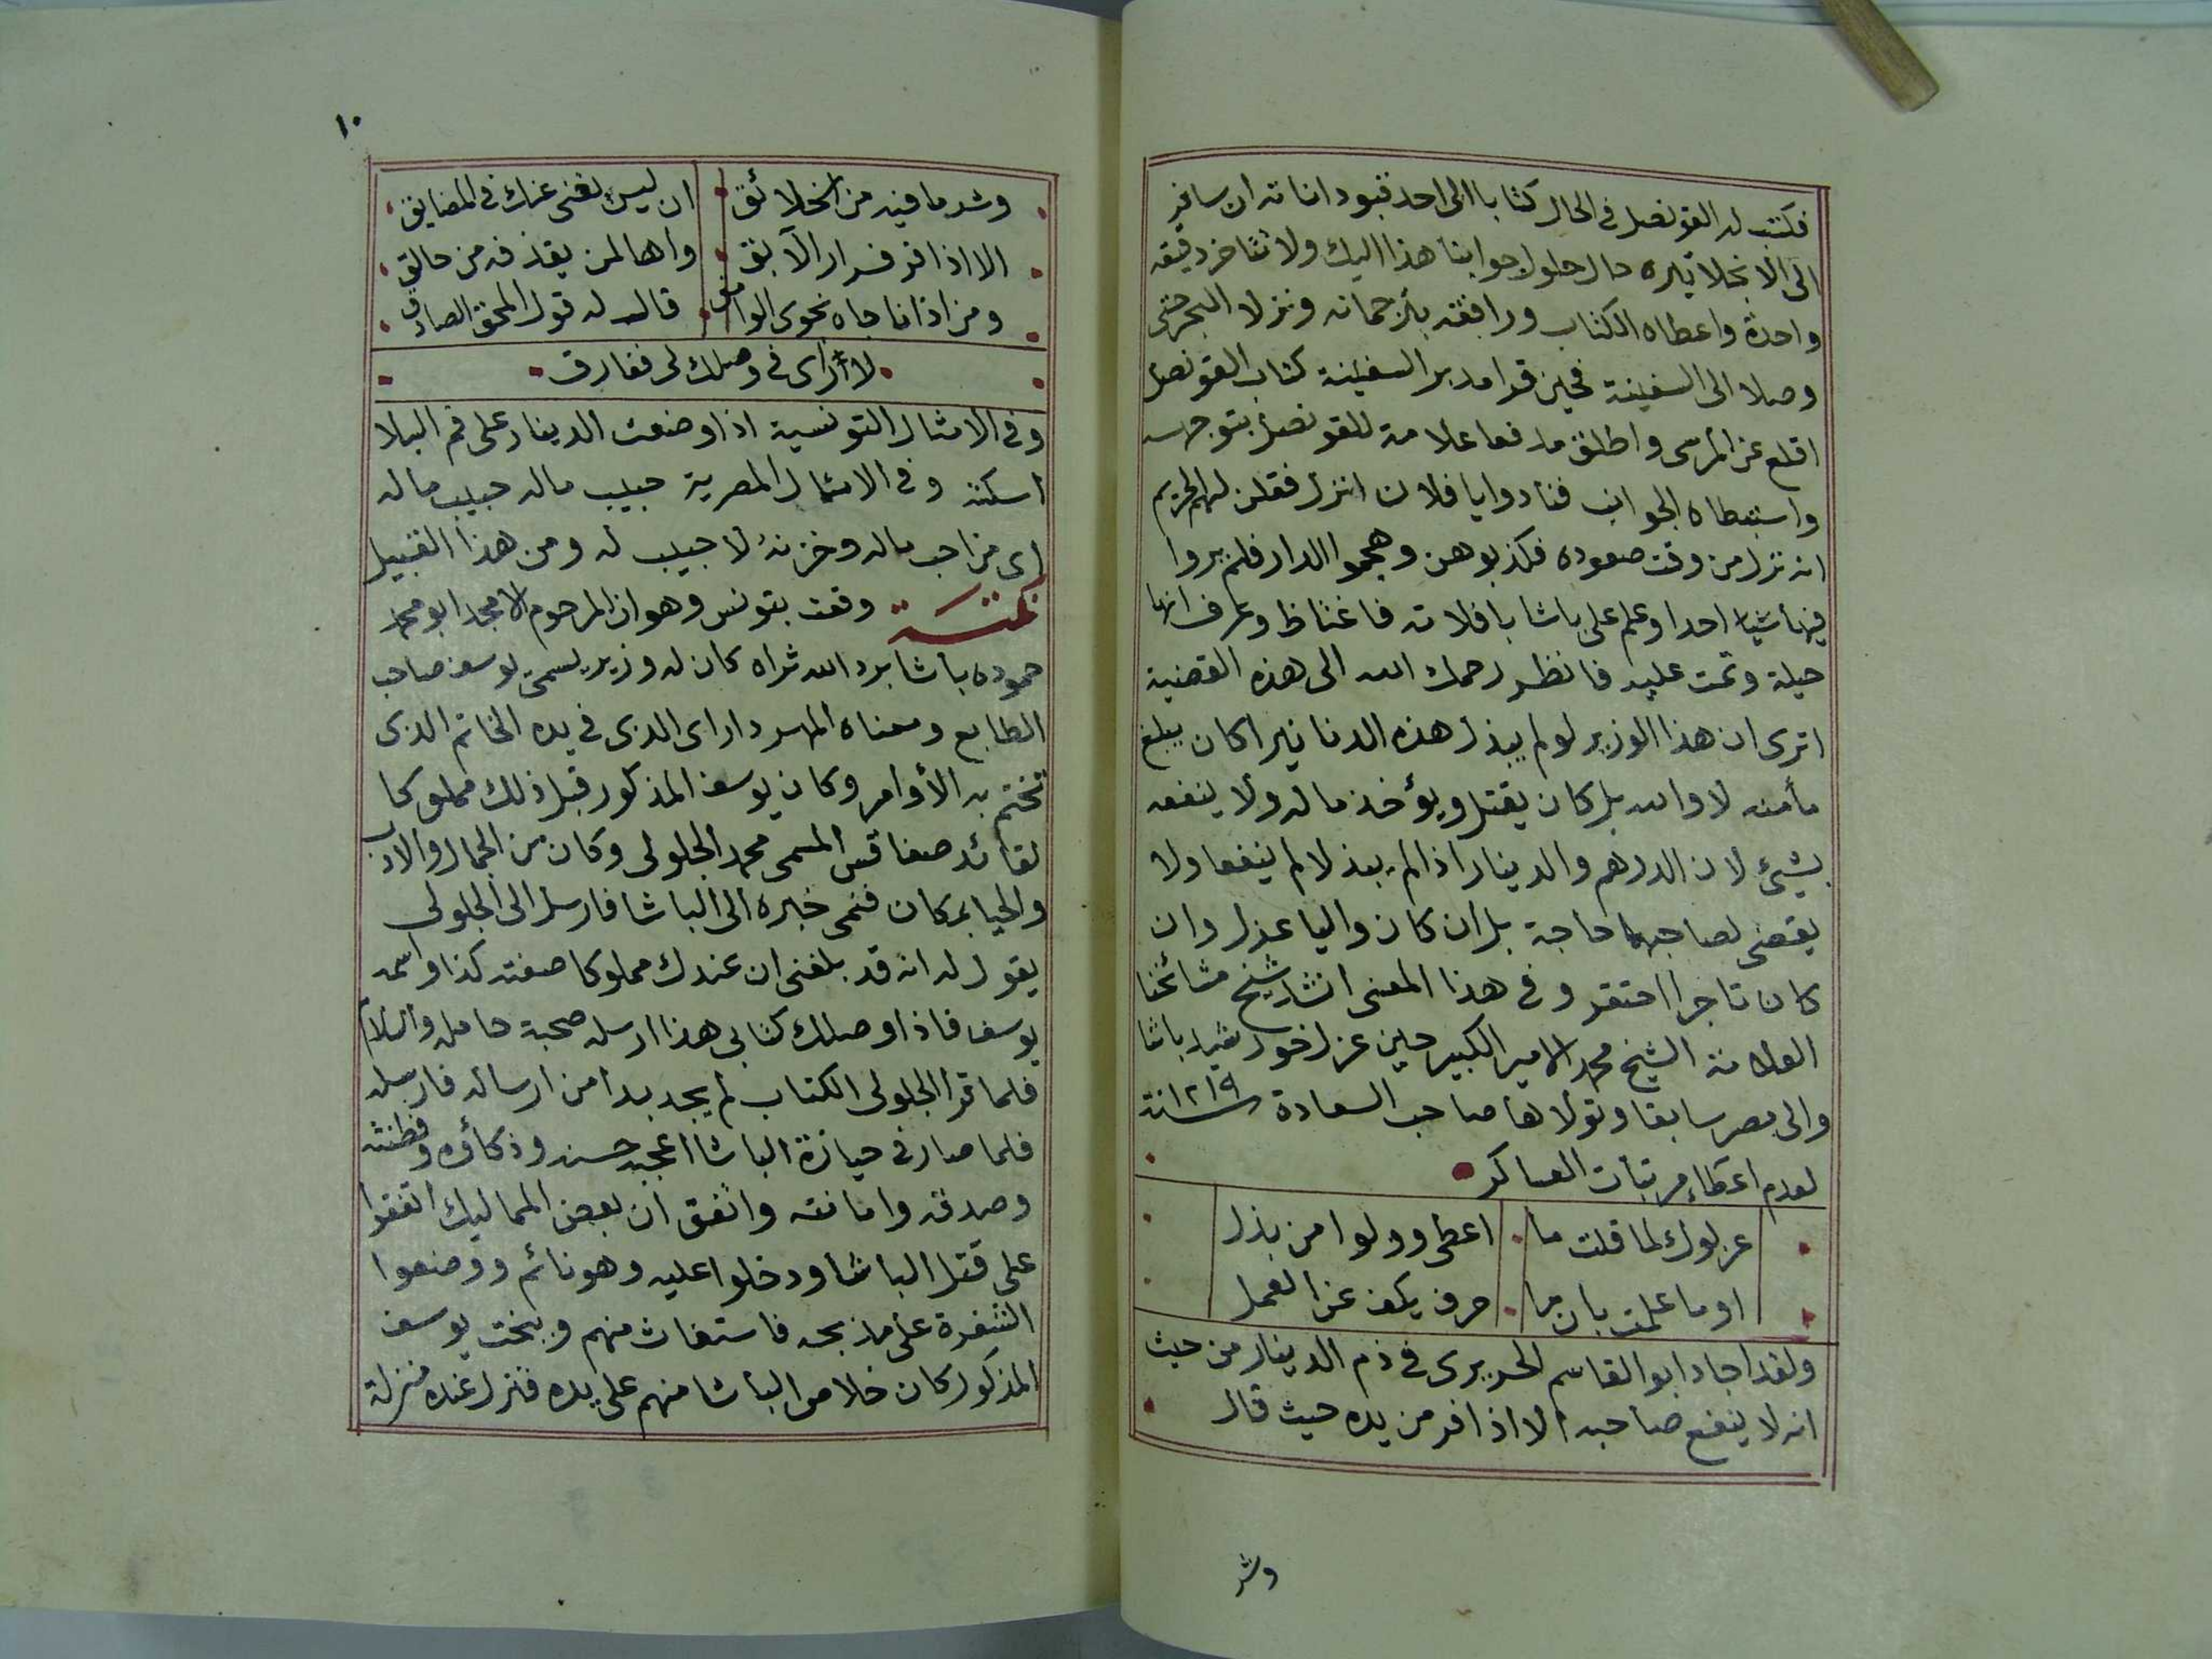 فكتب له القونصل فى الحال كتابا الى احد قبوداناته ان سافر
الى الانجلاتيره حال حلول جوابنا هذا اليك ولا تتاخر دقيقه
واحدة واعطاه الكتاب ورافقته بترجمانه ونزلا البحر حتى
وصلا الى السفينة فحين قرا مدبر السفينة كتاب القونصل
اقلع عن المرسى واطلق مدفعا علامة للقونصل بتوجهه
واستبطاه الجوانب فنادوا يا فلان انزل فقلن لهم الحريم
انه نزل من وقت صعوده فكذبوهن وهجموا الدار فلم يروا
فيها شيا احدا وعلم على باشا بافلاته فاغتاظ وعرف انها
حيلة وتمت عليه فانظر رحمك الله الى هذه القضية
اترى ان هذا الوزير لو لم يبذل هذه الدنانير اكان يبلغ
مأمنه لا والله بل كان يقتل ويؤخذ ماله ولا ينفعه
بشئ لان الدرهم والدينار اذا لم يبذلا لم ينفعا ولا
يقضى لصاحبهما حاجة بل ان كان واليا عزل وان
كان تاجرا احتقر وفى هذا المعنى انشد شيخ مشائخنا
العلامة الشيخ محمد الامير الكبير حين عزل خورشيد باشا
والى مصر سابقا وتولاها صاحب السعادة سنة ١٢١٩
لعدم اعطاء مرتبات العساكر
عزلوك لما قلت ما اعطى وولوا من بذل
اوما علمت بان ما حرف يكف عن العمل
ولقد اجاد ابو القاسم الحريرى فى ذم الدينار من حيث
انه لا ينفع صاحبه الا اذا فر من يده حيث قال
وشر
١٠
وشر ما فيه من الخلائق ان ليس يغنى عنك فى المضايق
الا اذا فر فرار الآبق واها لمن يقذفه من حالق
ومن اذا ناجاه نجوى الوامق قال له قول المحق الصادق
لا أرى فى وصلك لى ففارق
وفى الامثال التونسية اذا وضعت الدينار على فم البلا
اسكته وفى الامثال المصرية حبيب ماله حبيب ماله
اى من احب ماله وخزنه لا حبيب له ومن هذا القبيل
نكتة وقعت بتونس وهو ان المرحوم الامجد ابو محمد
حموده باشا برد الله ثراه كان له وزير يسمى يوسف صاحب
الطابع ومعناه المهردار اى الذى فى يده الخاتم الذى
تختم به الأوامر وكان يوسف المذكور قبل ذلك مملوكا
لقائد صفاقس المسمى محمد الجلولى وكان من الجمال والادب
والحيا بمكان فنمى خبره الى الباشا فارسل الى الجلولى
يقول له انه قد بلغنى ان عندك مملوكا صفته كذا واسمه
يوسف فاذا وصلك كتابى هذا ارسله صحبة حامله والسلام
فلما قرا الجلولى الكتاب لم يجد بدا من ارساله فارسله
فلما صار فى حيازة الباشا اعجبه حسنه وذكاؤه وفطنته
وصدقه وامانته واتفق ان بعض المماليك اتفقوا
على قتل الباشا ودخلوا عليه وهو نائم ووضعوا
الشفرة على مذبحه فاستغاث منهم وبخت يوسف
المذكور كان خلاص الباشا منهم على يده فنزل عنده منزلة